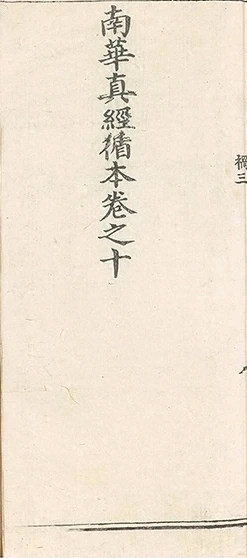 南華真經循本卷之十